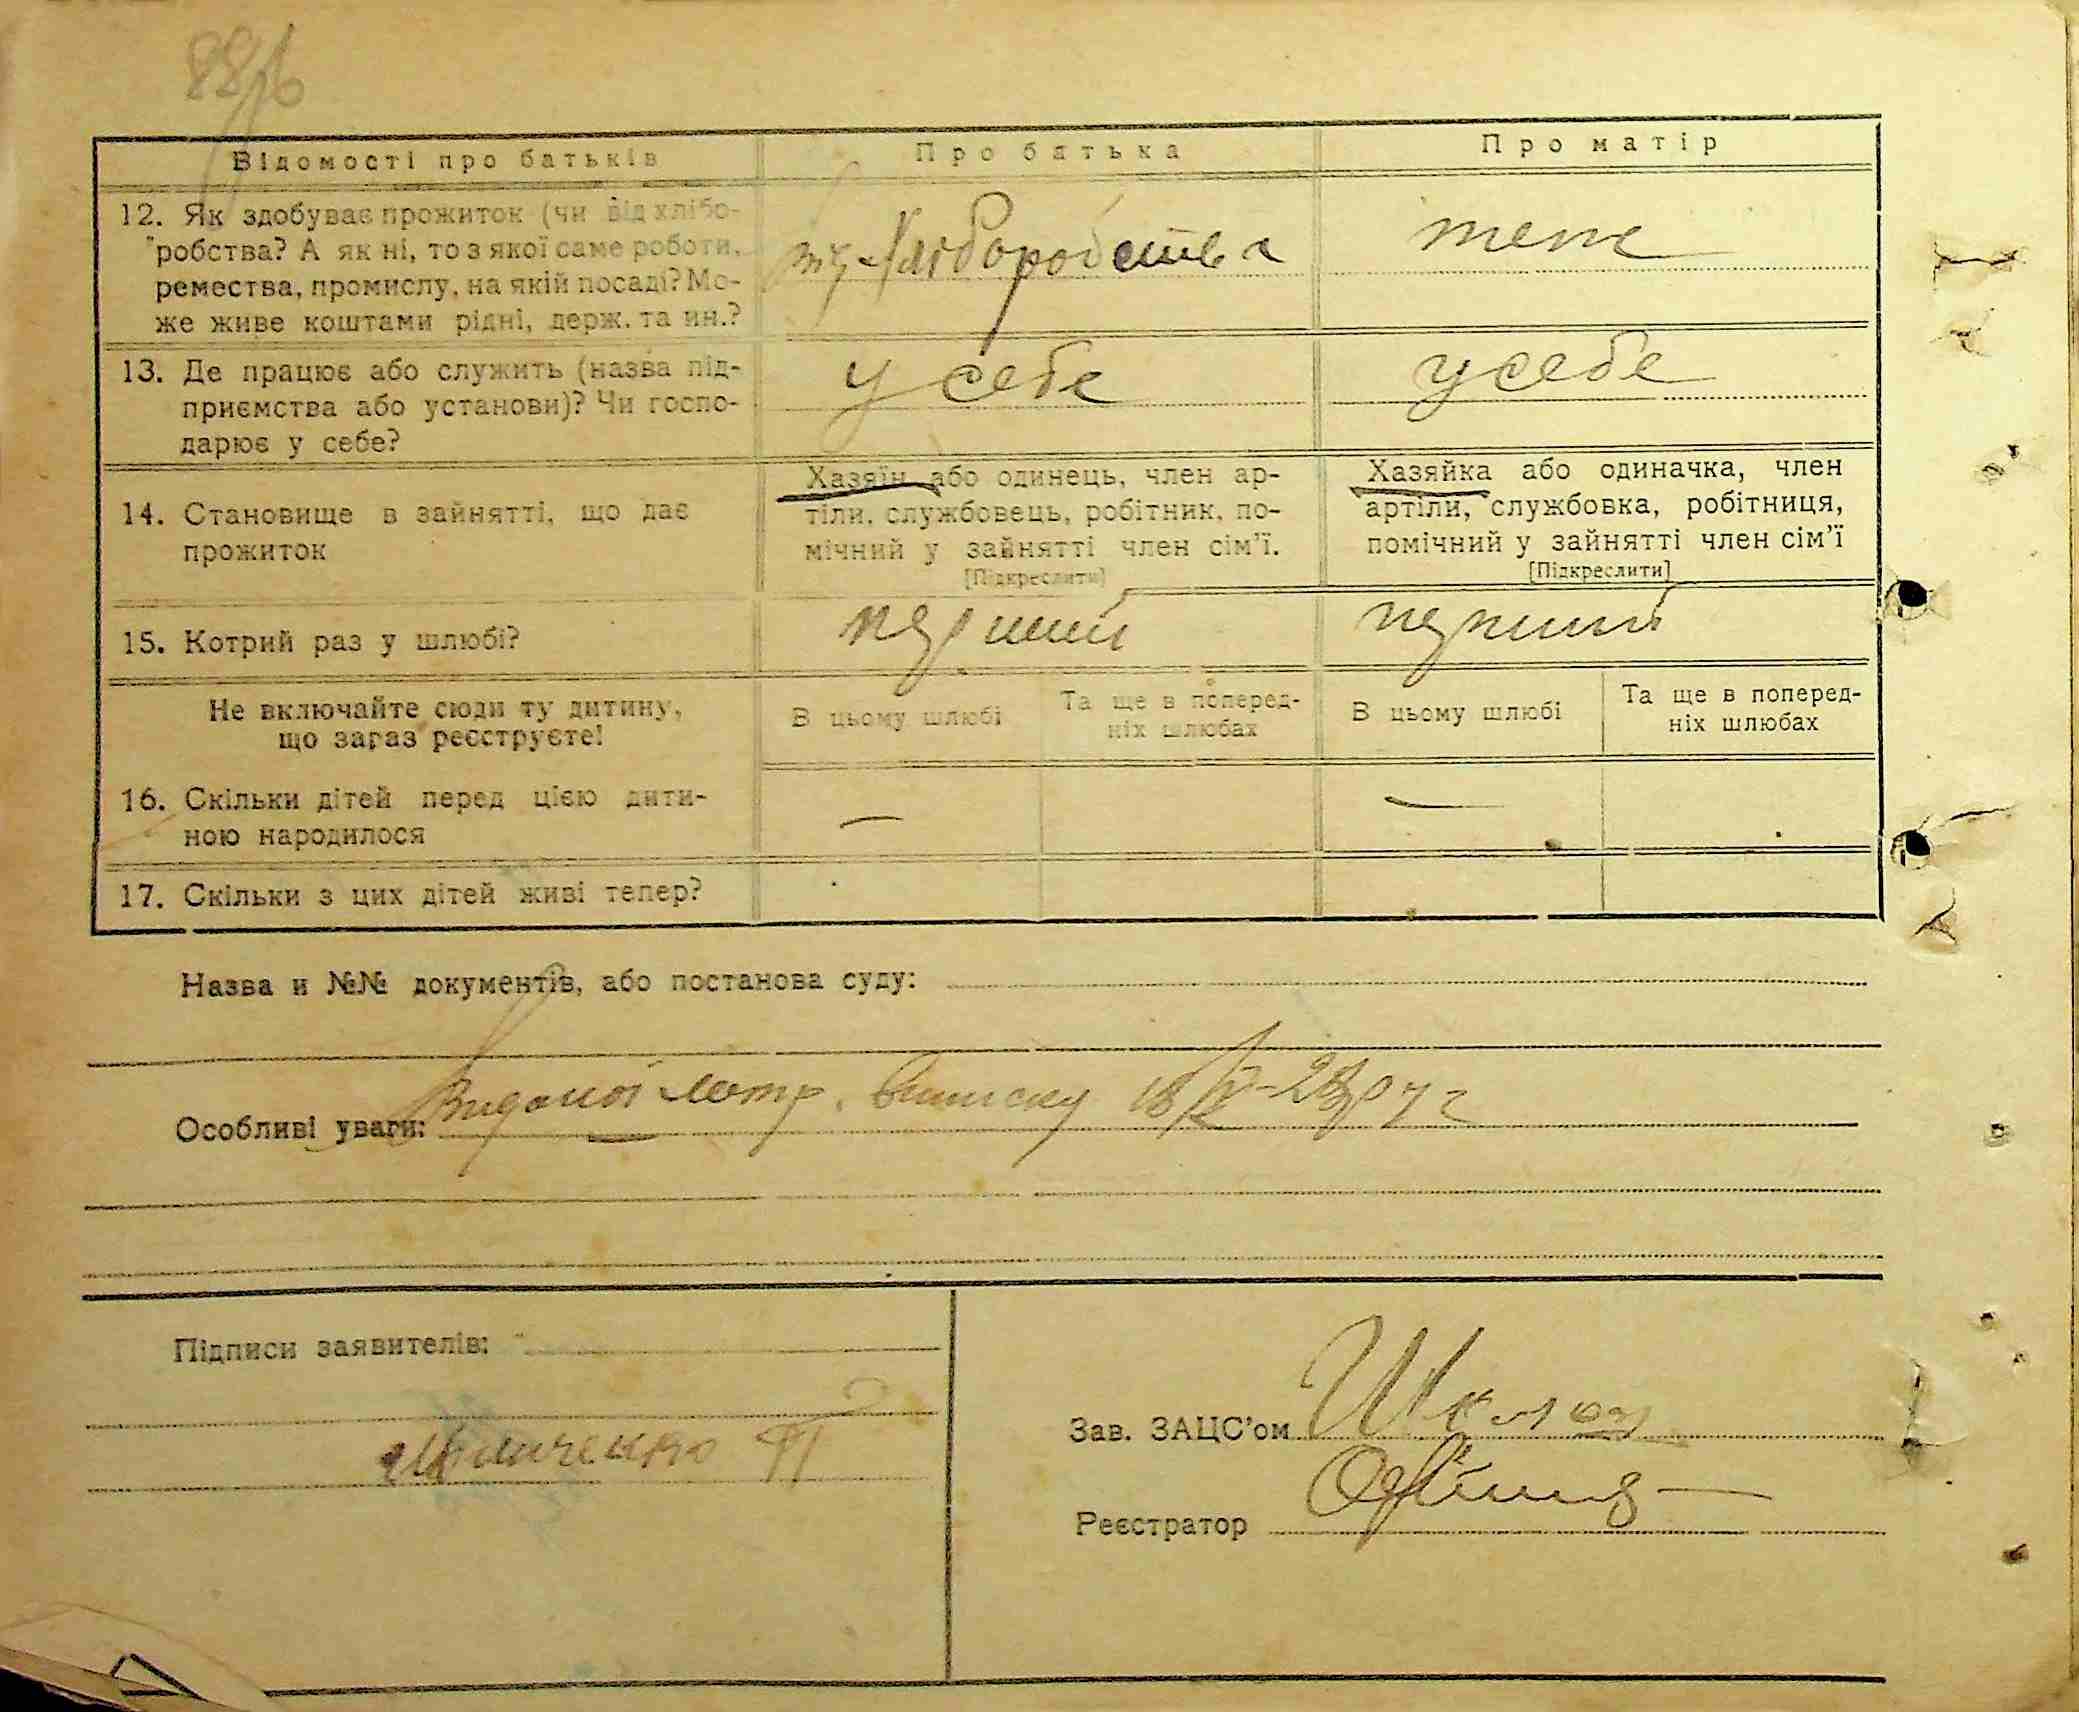 88
Відомості про батьків
Про батька
Про матір
12. Як здобуває прожиток (чи від хлібо-
робства? А як ні, то з якої саме роботи,
ремества, промислу, на якій посаді? Мо-
же живе коштами рідні, держ. та ин.?
хліборобства
теже
13. Де працює або служить (назва під-
приємства або установи)? Чи госпо-
дарює у себе?
у себе
у себе
14. Становище в зайнятті, що дає
прожиток
Хазяїн або одинець, член ар-
тіли, службовець, робітник, по-
мічний у зайнятті член сім'ї.
[Підкреслити]
Хазяйка або одиначка, член
артіли, службовка, робітниця,
помічний у зайнятті член сім'ї
[Підкреслити]
15. Котрий раз у шлюбі?
перший
перший
Не включайте сюди ту дитину,
що зараз реєструєте!
В цьому шлюбі
Та ще в поперед-
ніх шлюбах
В цьому шлюбі
Та ще в поперед-
ніх шлюбах
16. Скільки дітей перед цією дити-
ною народилося
—
—
17. Скільки з цих дітей живі тепер?
Назва и №№ документів, або постанова суду:
Особливі уваги: метр. виписку
Підписи заявителів:
Зав. ЗАЦС'ом
Реєстратор